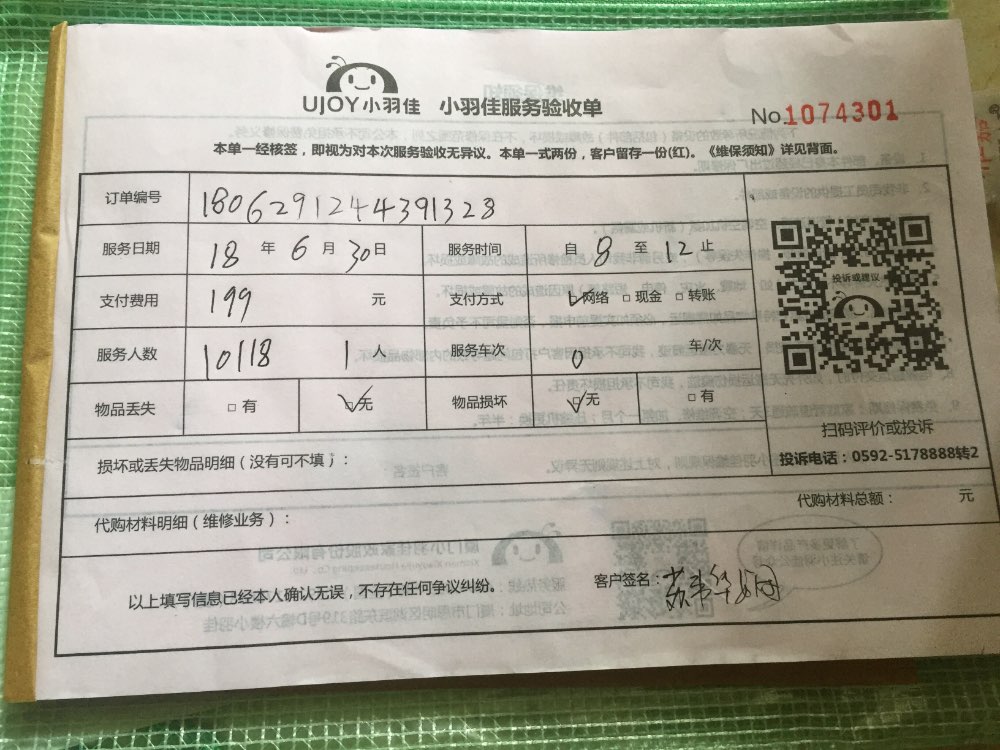 UJOY小羽佳 小羽佳服务验收单
No.1074301
本单一经核签，即视为对本次服务验收无异议。本单一式两份，客户留存一份(红)。《维保须知》详见背面。
订单编号 1806291244391328
服务日期 18 年 6 月 30 日 服务时间 自 8 至 12 止
支付费用 199 元 支付方式 ☑网络 □现金 □转账
服务人数 10118 1 人 服务车次 0 车/次
物品丢失 □有 ☑无 物品损坏 ☑无 □有
投诉或建议
扫码评价或投诉
投诉电话：0592-5178888转2
损坏或丢失物品明细（没有可不填）：
代购材料明细（维修业务）： 代购材料总额： 元
以上填写信息已经本人确认无误，不存在任何争议纠纷。 客户签名：